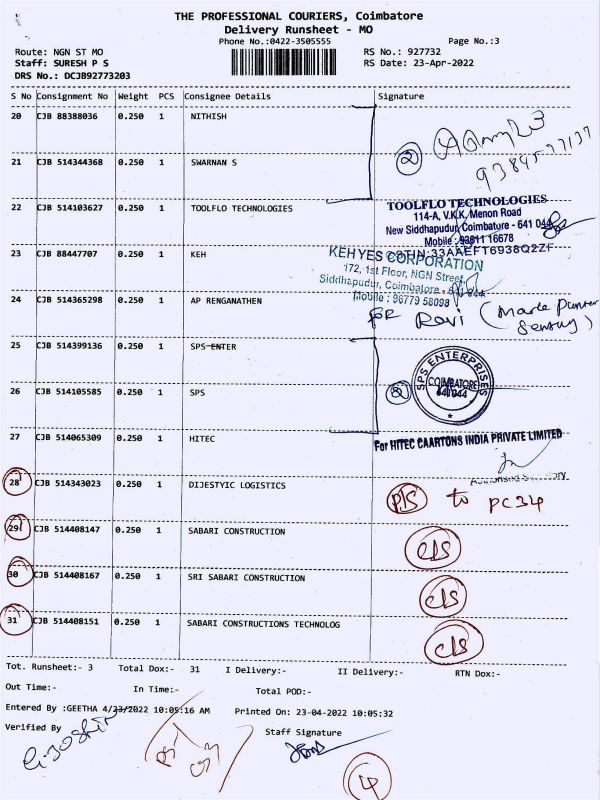 THE PROFESSIONAL COURIERS, Coimbatore
Delivery Runsheet - MO
Phone No.:0422-3505555
Page No.:3
Route: NGN ST MO
RS No.: 927732
Staff: SURESH P S
RS Date: 23-Apr-2022
DRS No.: DCJB92773203
S No Consignment No Weight PCS Consignee Details Signature
20 CJB 88388036 0.250 1 NITHISH
21 CJB 514344368 0.250 1 SWARNAN S
2
22 CJB 514103627 0.250 1 TOOLFLO TECHNOLOGIES
TOOLFLO TECHNOLOGIES
114-A, V.K.K. Menon Road
New Siddhapudur, Coimbatore - 641 044
Mobile : 93611 16678
GSTIN:33AAEFT6938Q2ZF
23 CJB 88447707 0.250 1 KEH
KEHYES CORPORATION
172, 1st Floor, NGN Street,
Siddhapudur, Coimbatore
Mobile : 96779 58098
24 CJB 514365298 0.250 1 AP RENGANATHEN
Ravi
25 CJB 514399136 0.250 1 SPS ENTER
26 CJB 514105585 0.250 1 SPS
2
SPS ENTERPRISES
COIMBATORE
641 044
27 CJB 514065309 0.250 1 HITEC
For HITEC CAARTONS INDIA PRIVATE LIMITED
28 CJB 514343023 0.250 1 DIJESTYIC LOGISTICS
to PC34
29 CJB 514408147 0.250 1 SABARI CONSTRUCTION
C/S
30 CJB 514408167 0.250 1 SRI SABARI CONSTRUCTION
C/S
31 CJB 514408151 0.250 1 SABARI CONSTRUCTIONS TECHNOLOG
C/S
Tot. Runsheet:- 3 Total Dox:- 31 I Delivery:- II Delivery:- RTN Dox:-
Out Time:- In Time:- Total POD:-
Entered By :GEETHA 4/23/2022 10:05:16 AM Printed On: 23-04-2022 10:05:32
Verified By
Staff Signature
4